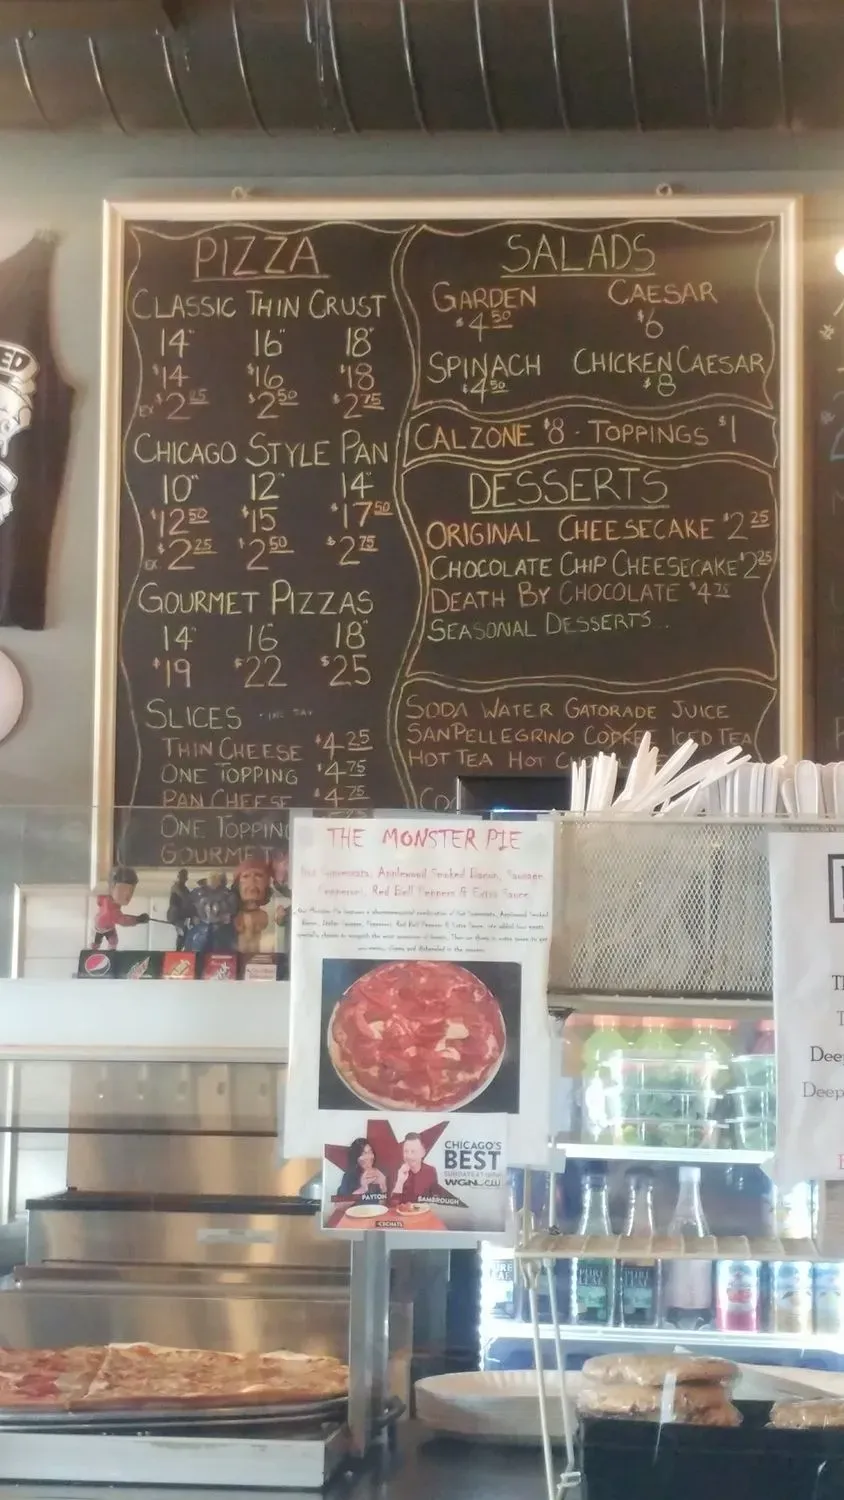 PIZZA
CLASSIC THIN CRUST
14" 16" 18"
$14 $16 $18
EX $2.25 $2.50 $2.75
CHICAGO STYLE PAN
10" 12" 14"
$12.50 $15 $17.50
EX $2.25 $2.50 $2.75
GOURMET PIZZAS
14" 16" 18"
$19 $22 $25
SLICES
THIN CHEESE $4.25
ONE TOPPING $4.75
PAN CHEESE $4.75
ONE TOPPING
GOURMET
SALADS
GARDEN CAESAR
$4.50 $6
SPINACH CHICKEN CAESAR
$4.50 $8
CALZONE $8 - TOPPINGS $1
DESSERTS
ORIGINAL CHEESECAKE $2.25
CHOCOLATE CHIP CHEESECAKE $2.25
DEATH BY CHOCOLATE $4.75
SEASONAL DESSERTS...
SODA WATER GATORADE JUICE
SANPELLEGRINO COFFEE ICED TEA
HOT TEA HOT
THE MONSTER PIE
Applewood Smoked Bacon, Sausage,
Pepperoni, Red Bell Peppers & Extra Sauce
CHICAGO'S
BEST
WGN CW
PAYTON
BAMBROUGH
PURE
LEAF
Deep